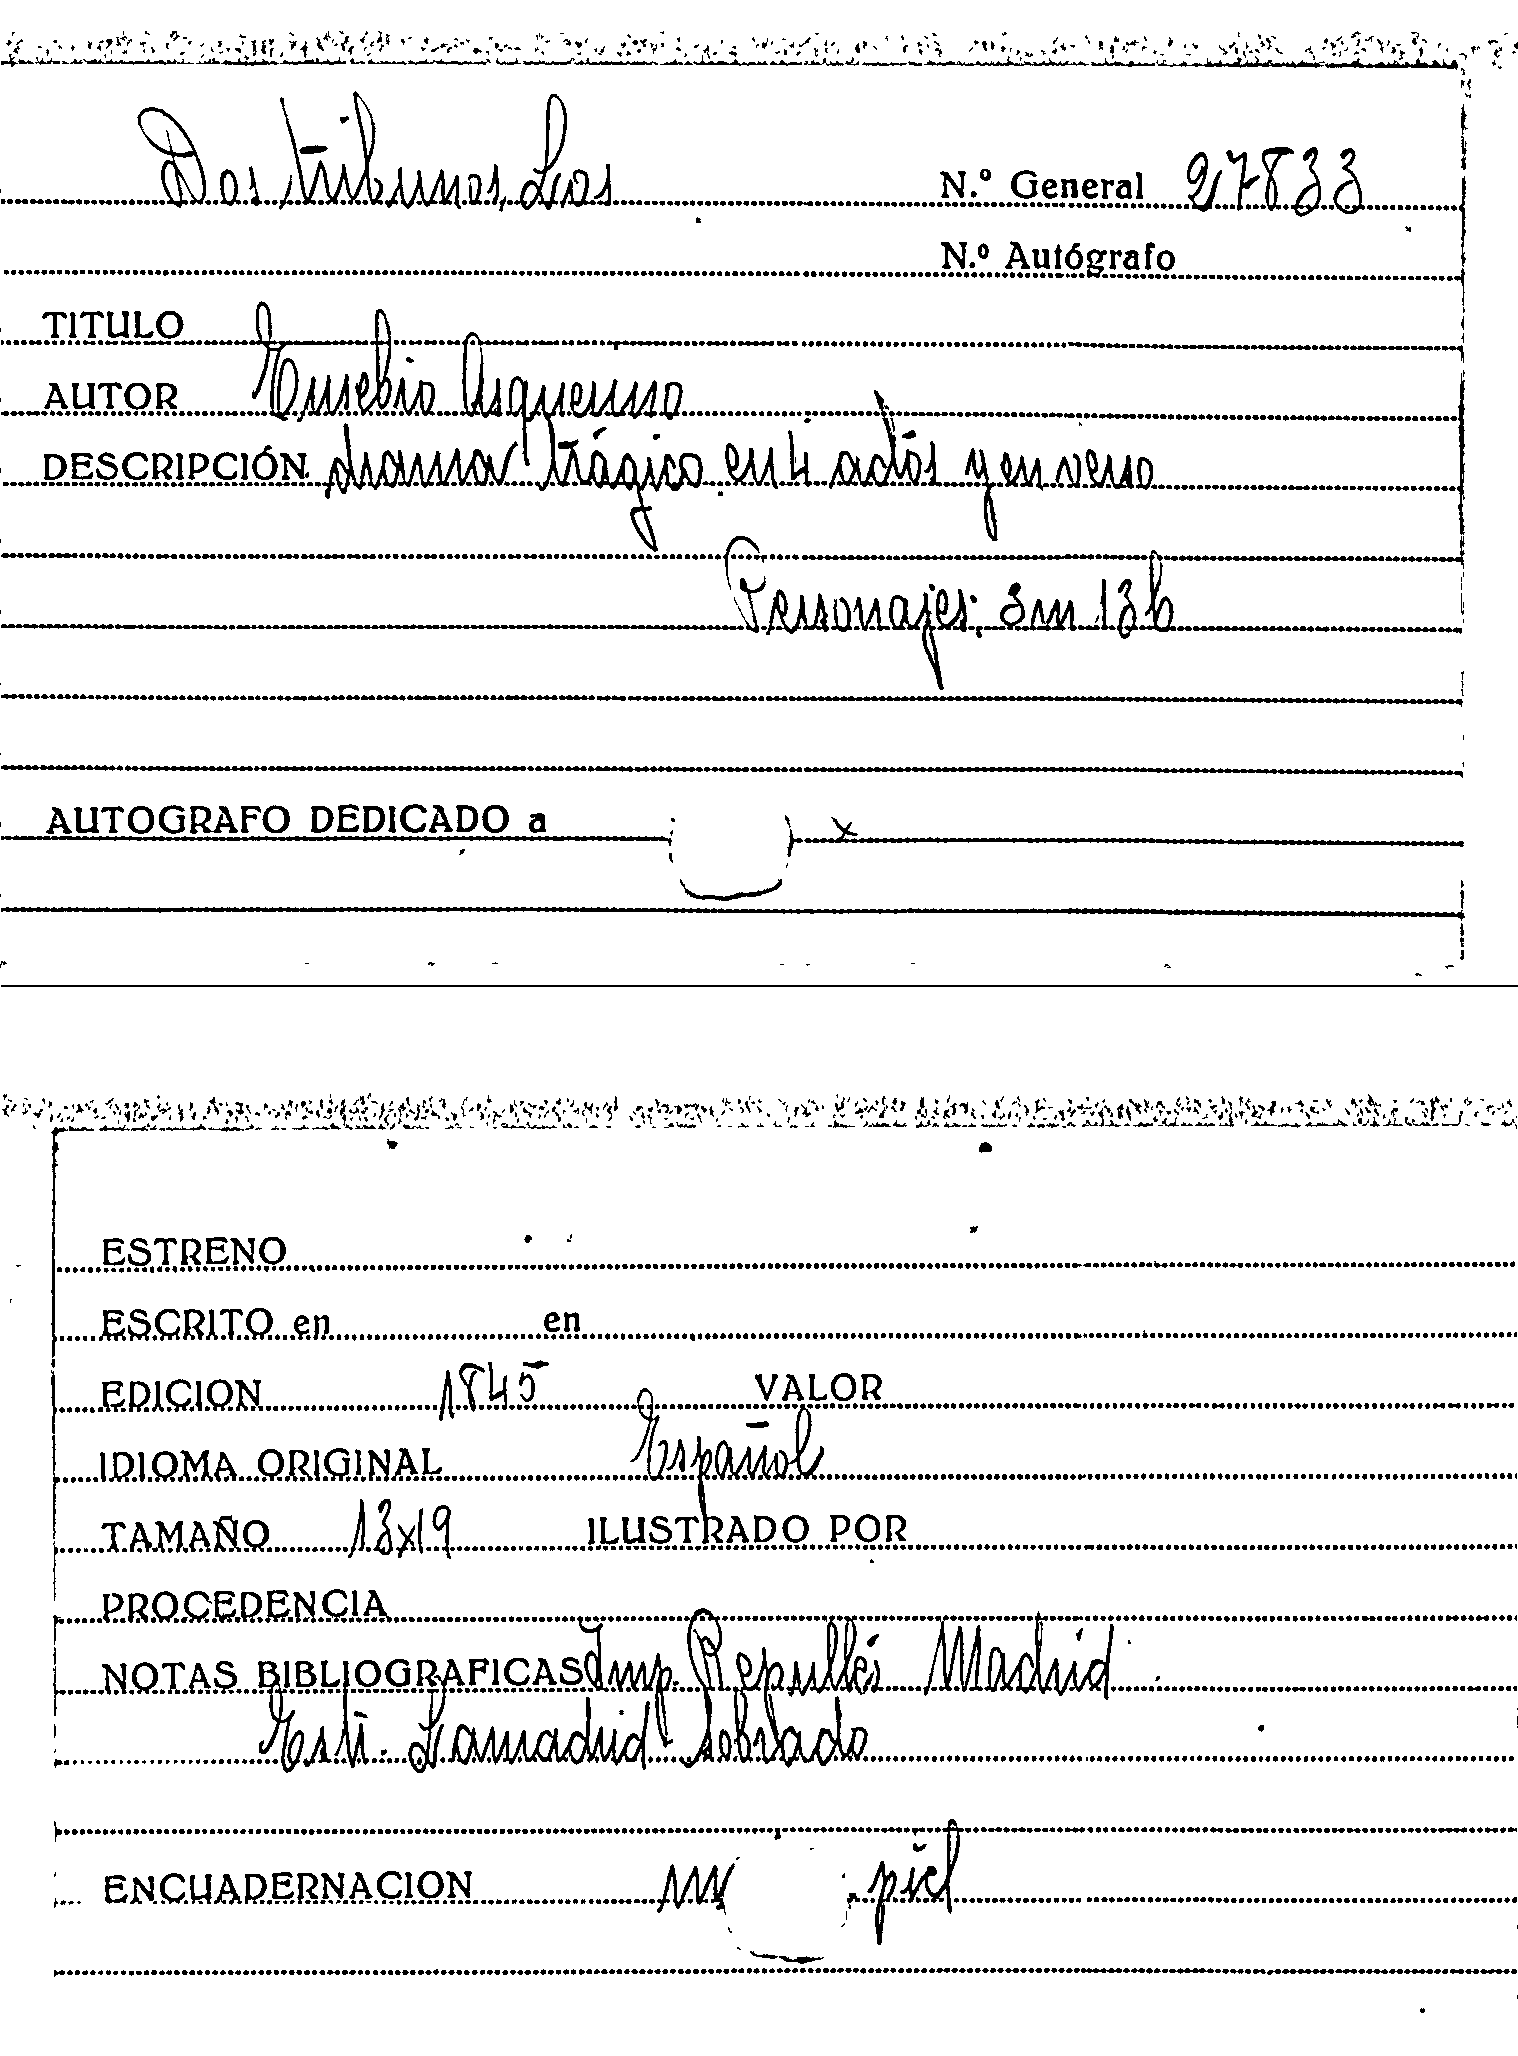 Dos tribunos, Los N.º General 27833
N.º Autógrafo
TITULO
AUTOR Eusebio Asquerino
DESCRIPCIÓN drama trágico en 4 actos y en verso
Personajes: 3m 13h
AUTOGRAFO DEDICADO a x
ESTRENO
ESCRITO en en
EDICION 1845 VALOR
IDIOMA ORIGINAL Español
TAMAÑO 13x19 ILUSTRADO POR
PROCEDENCIA
NOTAS BIBLIOGRAFICAS Imp. Repullés Madrid
Lamadrid Sobrado
ENCUADERNACION piel